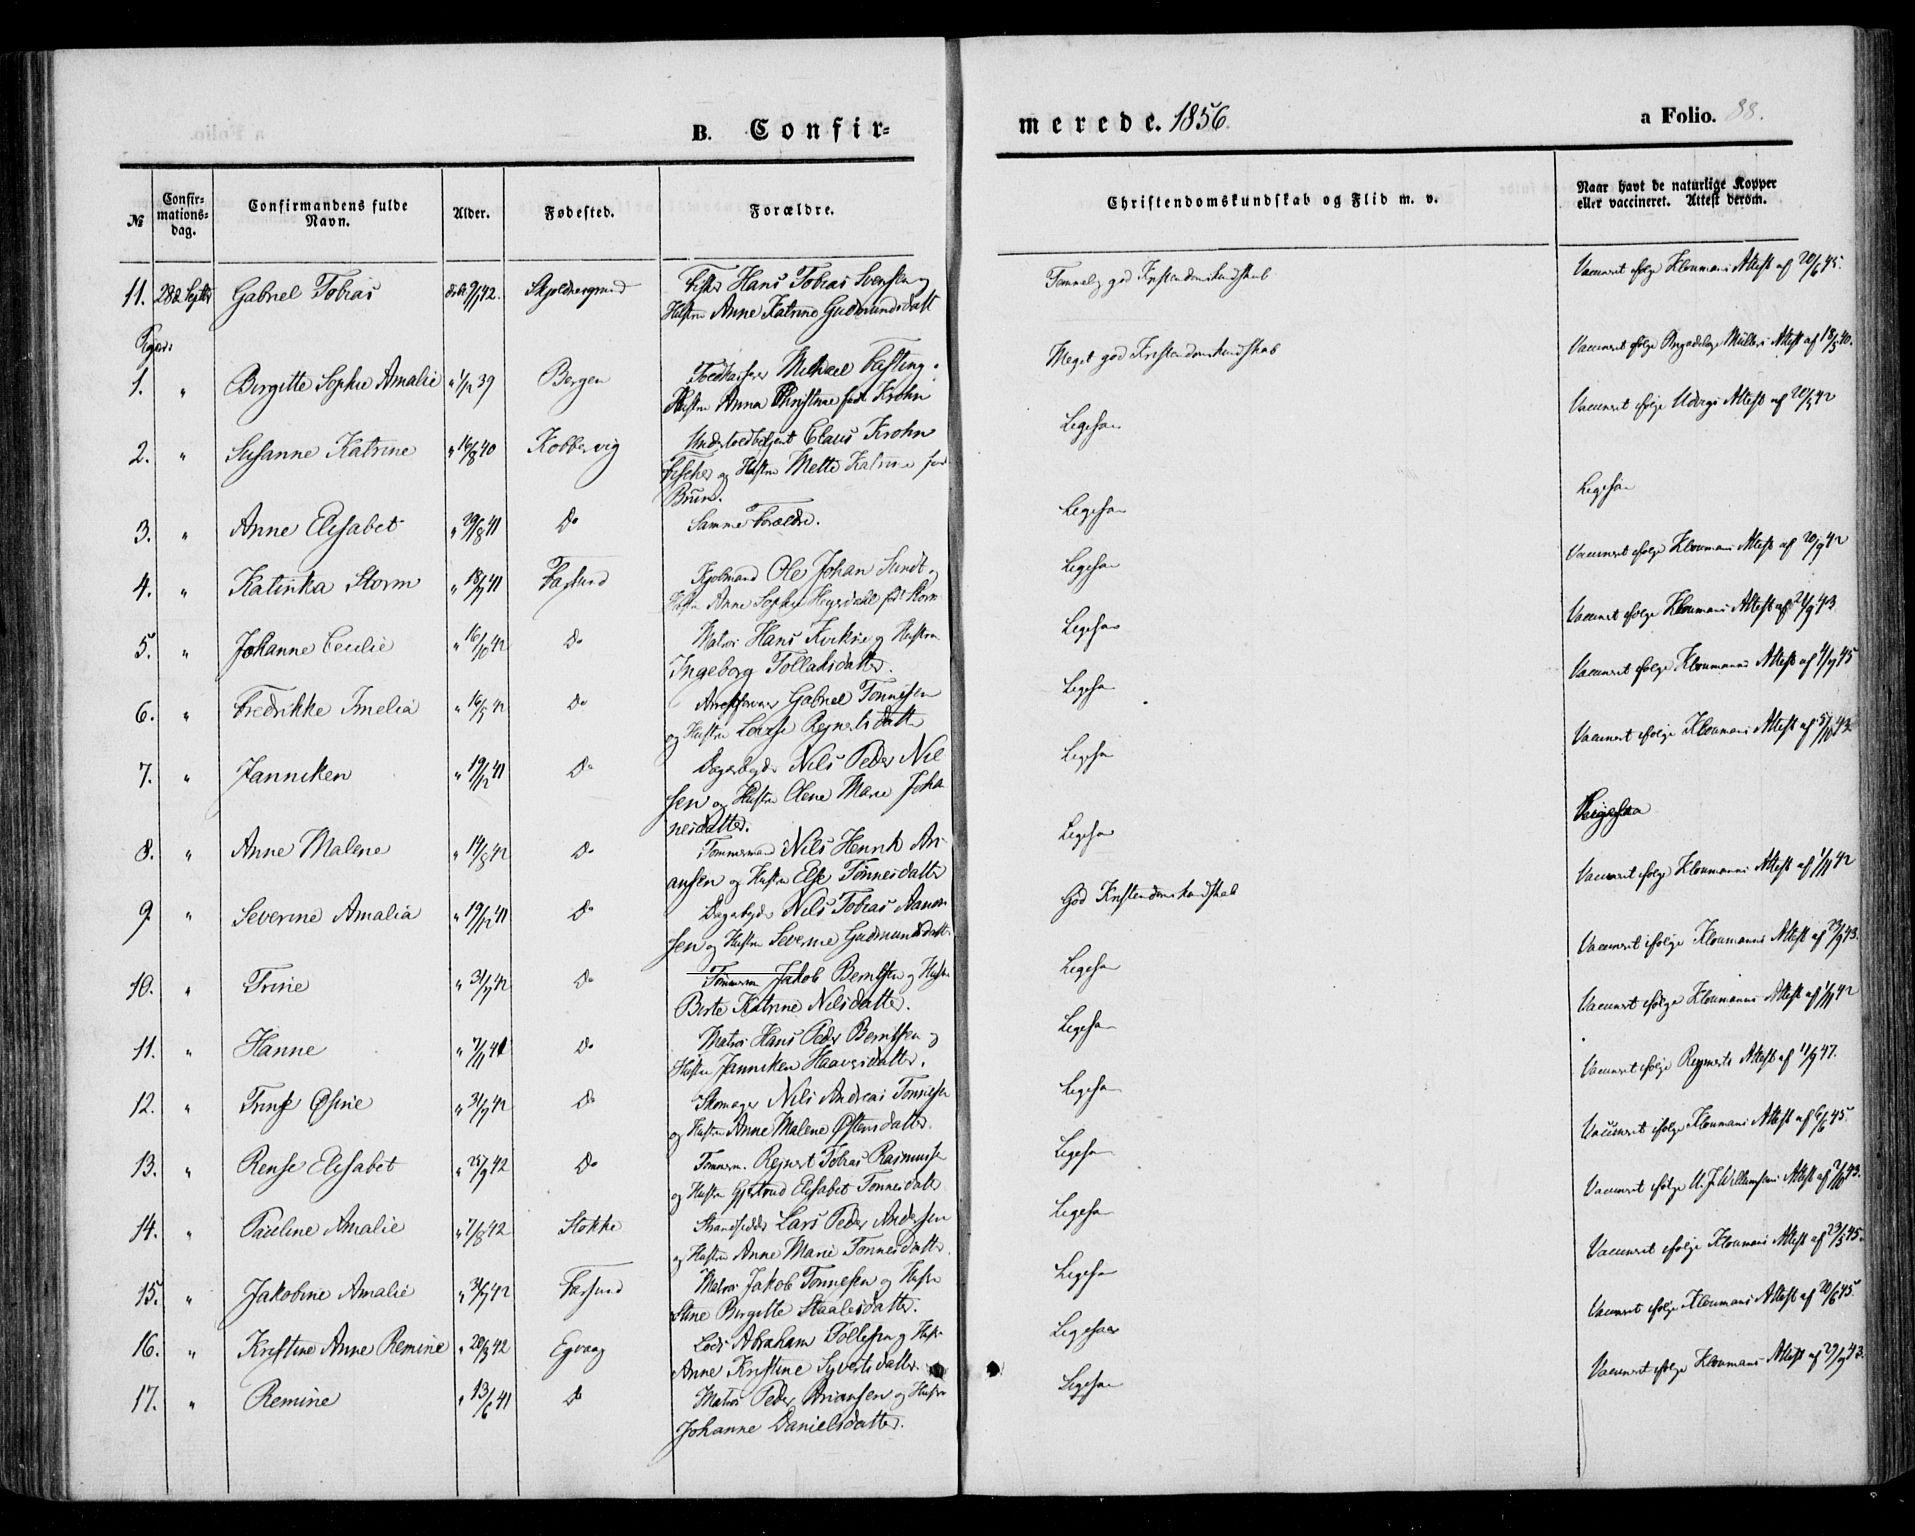 B. Confir=
merede. 1856.
a Folio. 88.
№
Confir-
mations-
dag.
Confirmandens fulde
Navn.
Alder.
Fødested.
Forældre.
Christendomskundskab og Flid m. v.
Naar havt de naturlige Kopper
eller vaccineret. Attest derom.
11. 28de Septbr Gabriel Tobias 42. Hans Tobias Svensen og
Hustru Anne Katrine Gudmundsdatt
Temmelig god Kristendomskundskab
Vaccinert ifølge Kloumans Attest af 20/6 45.
Piger:
1. " Birgitte Sophie Amalie " 39 Bergen Michael Fasting
Hustru Anna Christine født Krohn
Meget god Kristendomskundskab
Vaccinert ifølge Müllers Attest af 40.
2. " Susanne Katrine " 16/8 40 Kobbervig Claus Krohn
Fischer og Hustru Mette Katrine fød
Brun.
Ligesaa
Vaccinert ifølge Attest af 42
3. " Anne Elisabet " 29/8 41 Do Samme Forældre.
Ligesaa
Ligesaa
4. " Katinka Storm " 18/ 41 Farsund Kjøbmand Ole Johan Sundt og
Hustru Anne Sophie født Storm
Ligesaa
Vaccinert ifølge Kloumans Attest af 20/9 42
5. " Johanne Cecilie " 42 Do Matros Hans og Hustru
Ingeborg Tollaksdatter.
Ligesaa
Vaccinert ifølge Kloumans Attest af 43.
6. " Fredrikke Imelia " 42 Do Gabriel Tønnesen
og Hustru Lovise Rejnertsdatter
Ligesaa
Vaccinert ifølge Kloumanns Attest af 45
7. " Janniken " 19/12 41 Do Nils Peder Niel
sen og Hustru Olene Marie Joha
nesdatter.
Ligesaa
Vaccinert ifølge Kloumans Attest af 43
8. " Anne Malene " 14/8 42 Do Tømmermand Nils Henrik Ari
ansen og Hustru Else Tønnesdatter
Ligesaa
Ligesaa
9. " Severine Amalia " 19/12 41 Do Nils Tobias Aanen
sen og Hustru Severine Gudmundsdatt.
God Kristendomskundskab
Vaccinert ifølge Kloumanns Attest af 42
10. " Trine " 42 Do Tømmerm Jakob Berntsen og Hustru
Birte Katrine Nilsdatter.
Ligesaa
Vaccinert ifølge Kloumanns Attest af 43.
11. " Hanne " 41 Do Matros Hans Peder Berntsen og
Hustru Janniken Haaversdatter.
Ligesaa
Vaccinert ifølge Kloumanns Attest af 42
12. " Trine " 42 Do Skomager Nils Andreas Tønnesen
og Hustru Anne Malene Østensdatter.
Ligesaa
Vaccinert ifølge Reymerts Attest af 11/9 47.
13. " Rense Elisabet " 25/9 42 Do Tømmerm. Rejnert Tobias Rasmussen
og Hustru Gjertrud Elisabet Tønnesdatt
Ligesaa
Vaccinert ifølge Kloumans Attest af 6/6 45.
14. " Pauline Amalie " 7/8 42 Stokke Strandsidder Lars Peder Andersen
og Hustru Anne Marie Tønnesdatter.
Ligesaa
Vaccinert ifølge Attest af 43.
15. " Jakobine Amalie " 42 Farsund Matros Jakob Tønnesen og Hustru
Stine Birgitte Staalesdatter.
Ligesaa
Vaccinert ifølge Kloumans Attest af 23/5 45.
16. " Kristine Anne Remine " 20/3 42 Egvaag Lods Abraham Tollefsen og Hustru
Anne Kristine Syvertsdatter.
Ligesaa
Vaccinert ifølge Kloumans Attest af 20/6 45.
17. " Remine " 13/6 41 Do Matros Peder Ariansen og Hustru
Johanne Danielsdatter.
Ligesaa
Vaccinert ifølge Kloumans Attest af 43.